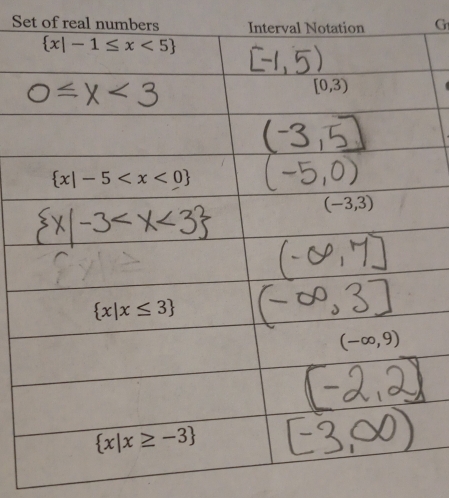 Set of real numbers Interval Notation
{x| − 1 ≤ x < 5} [-1, 5)
0 ≤ x < 3 [0,3)
(-3, 5]
{x| − 5 < x < 0} (-5, 0)
{x|-3 < x < 3} (−3,3)
(-∞, 7]
{x|x ≤ 3} (-∞, 3]
(−∞, 9)
[-2, 2]
{x|x ≥ −3} [-3, ∞)